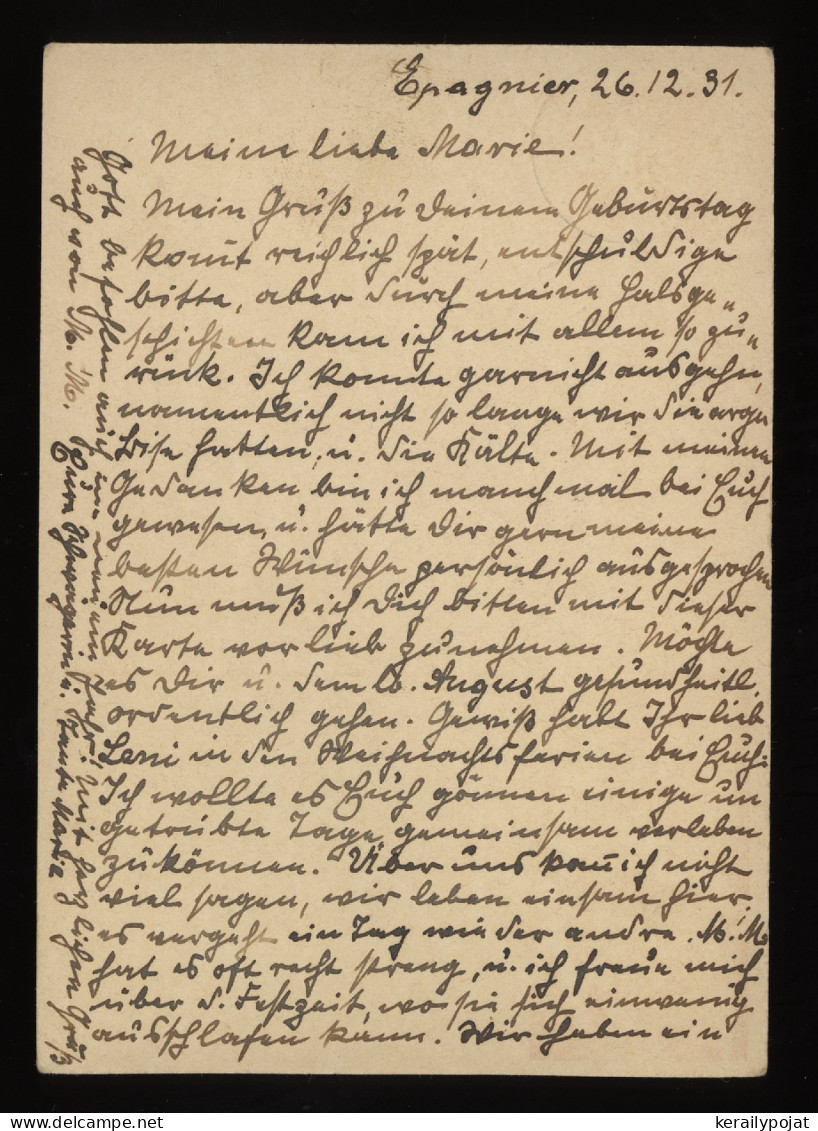 Epagnier, 26.12.31.
Meine liebe Marie!
Mein Gruß zu Deinem Geburtstag
komt reichlich spät, entschuldige
bitte, aber durch meine Halsge„
schichten kam ich mit allem so zu„
rück. Ich konnte garnicht ausgehn,
namentlich nicht so lange wir die arge
Bise hatten, u. die Kälte. Mit meinen
Gedanken bin ich manchmal bei Euch
gewesen, u. hätte Dir gern meine
besten Wünsche persönlich ausgesprochen
Nun muß ich Dich bitten mit dieser
Karte vorlieb zu nehmen. Möchte
es Dir u. dem lb. August gesundheitl.
ordentlich gehen. Gewiß habt Ihr lieb
Leni in den Weihnachtsferien bei Euch.
Ich wollte es Euch gönnen einige un
getrübte Tage gemeinsam verleben
zu können. Über uns kan ich nicht
viel sagen, wir leben einsam hier,
es vergeht ein Tag wie der andre. M. M.
hat es oft recht streng, u. ich freue mich
über d. Festzeit, wo sie sich einwenig
ausschlafen kann. Wir haben ein
Gott befohlen auch im neuen Jahr! Mit herzlichen Gruß
auch von M. M. Eure Schwägerin u. Tante Maria
www.kerailypojat.com